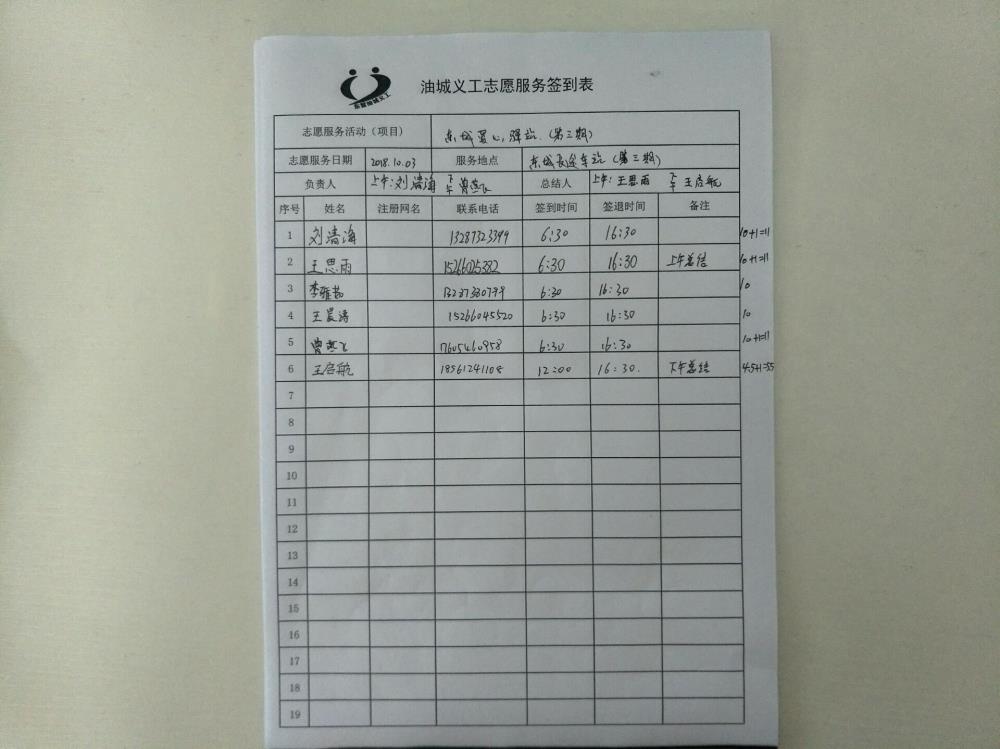 东营油城义工
油城义工志愿服务签到表
志愿服务活动（项目） 东城爱心驿站（第三期）
志愿服务日期 2018.10.03 服务地点 东城长途车站（第三期）
负责人 上午:刘清海 下午 曾燕飞 总结人 上午:王思雨 下午 王启航
序号 姓名 注册网名 联系电话 签到时间 签退时间 备注
1 刘清海 13287323399 6:30 16:30 10+1=11
2 王思雨 15266025382 6:30 16:30 上午总结 10+1=11
3 6:30 16:30 10
4 王晨涛 15266045520 6:30 16:30 10
5 曾燕飞 17605460958 6:30 16:30 10+1=11
6 王启航 18561241108 12:00 16:30. 下午总结 4.5+1=5.5
7
8
9
10
11
12
13
14
15
16
17
18
19